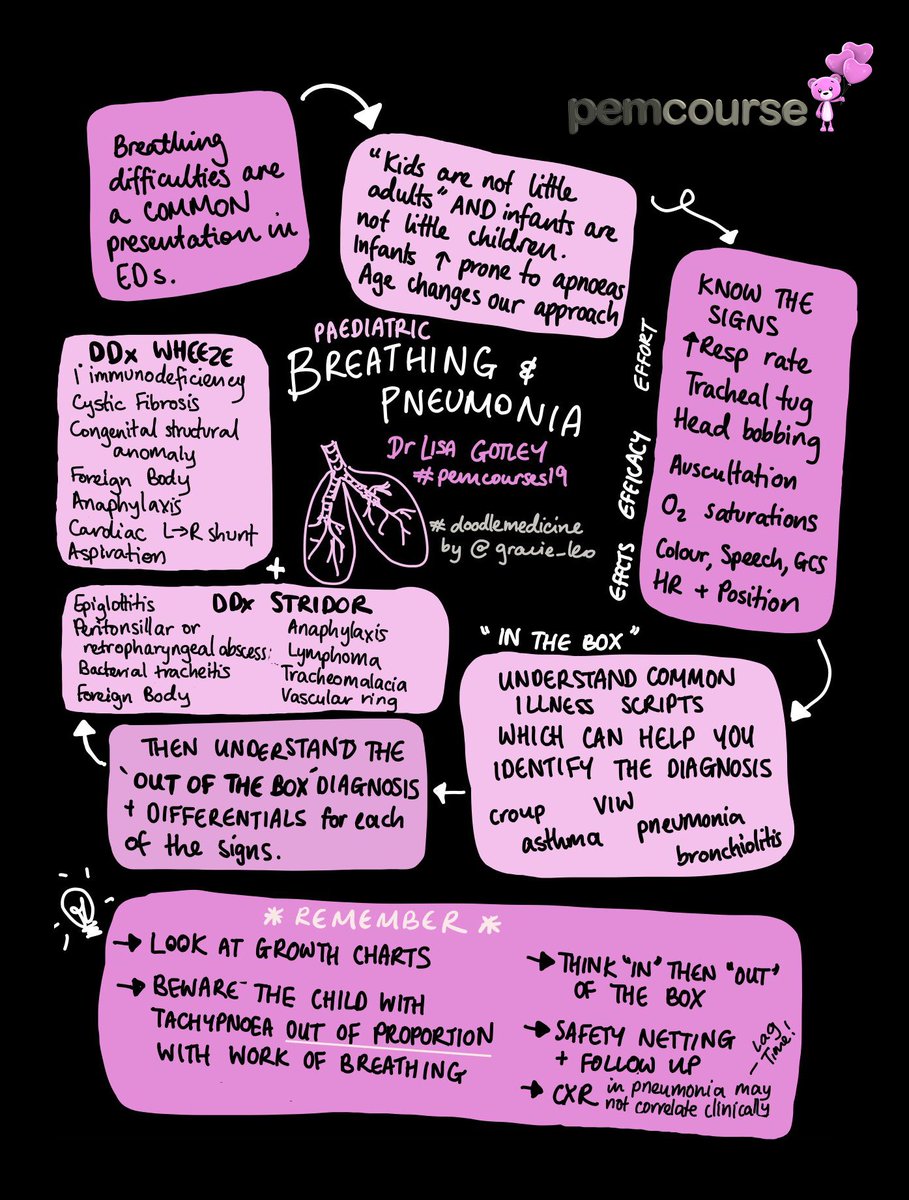 pemcourse
Breathing
difficulties are
a COMMON
presentation in
EDs.
"Kids are not little
adults" AND infants are
not little children.
Infants ↑ prone to apnoeas
Age changes our approach
KNOW THE
SIGNS
↑Resp rate
Tracheal tug
Head bobbing
Auscultation
O2 saturations
Colour, Speech, GCS
HR + Position
EFFORT
EFFICACY
EFFECTS
PAEDIATRIC
BREATHING &
PNEUMONIA
Dr LISA GOTLEY
#pemcourses19
#doodlemedicine
by @gracie_leo
"IN THE BOX"
UNDERSTAND COMMON
ILLNESS SCRIPTS
WHICH CAN HELP YOU
IDENTIFY THE DIAGNOSIS
croup
VIW
asthma
pneumonia
bronchiolitis
THEN UNDERSTAND THE
'OUT OF THE BOX' DIAGNOSIS
+ DIFFERENTIALS for each
of the signs.
DDx STRIDOR
Epiglottitis
Peritonsillar or
retropharyngeal abscess
Bacterial tracheitis
Foreign Body
Anaphylaxis
Lymphoma
Tracheomalacia
Vascular ring
+
DDx WHEEZE
1° immunodeficiency
Cystic Fibrosis
Congenital structural
anomaly
Foreign Body
Anaphylaxis
Cardiac L→R shunt
Aspiration
* REMEMBER *
→ LOOK AT GROWTH CHARTS
→ BEWARE THE CHILD WITH
TACHYPNOEA OUT OF PROPORTION
WITH WORK OF BREATHING
→ THINK "IN" THEN "OUT"
OF THE BOX
→ SAFETY NETTING
+ FOLLOW UP
→ CXR in pneumonia may
not correlate clinically
– Lag
Time!